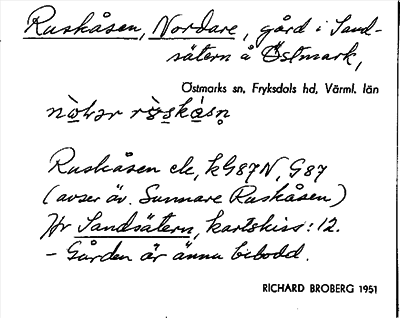 Ruskåsen, Nordare, gård i Sand-
sätern å Östmark,
Östmarks sn, Fryksdals hd, Värml. län
Ruskåsen ek, kG87N, G87
(avser äv. Sunnare Ruskåsen)
Hr Sandsätern, kartskiss: 12.
- Gården är ännu bebodd.
RICHARD BROBERG 1951